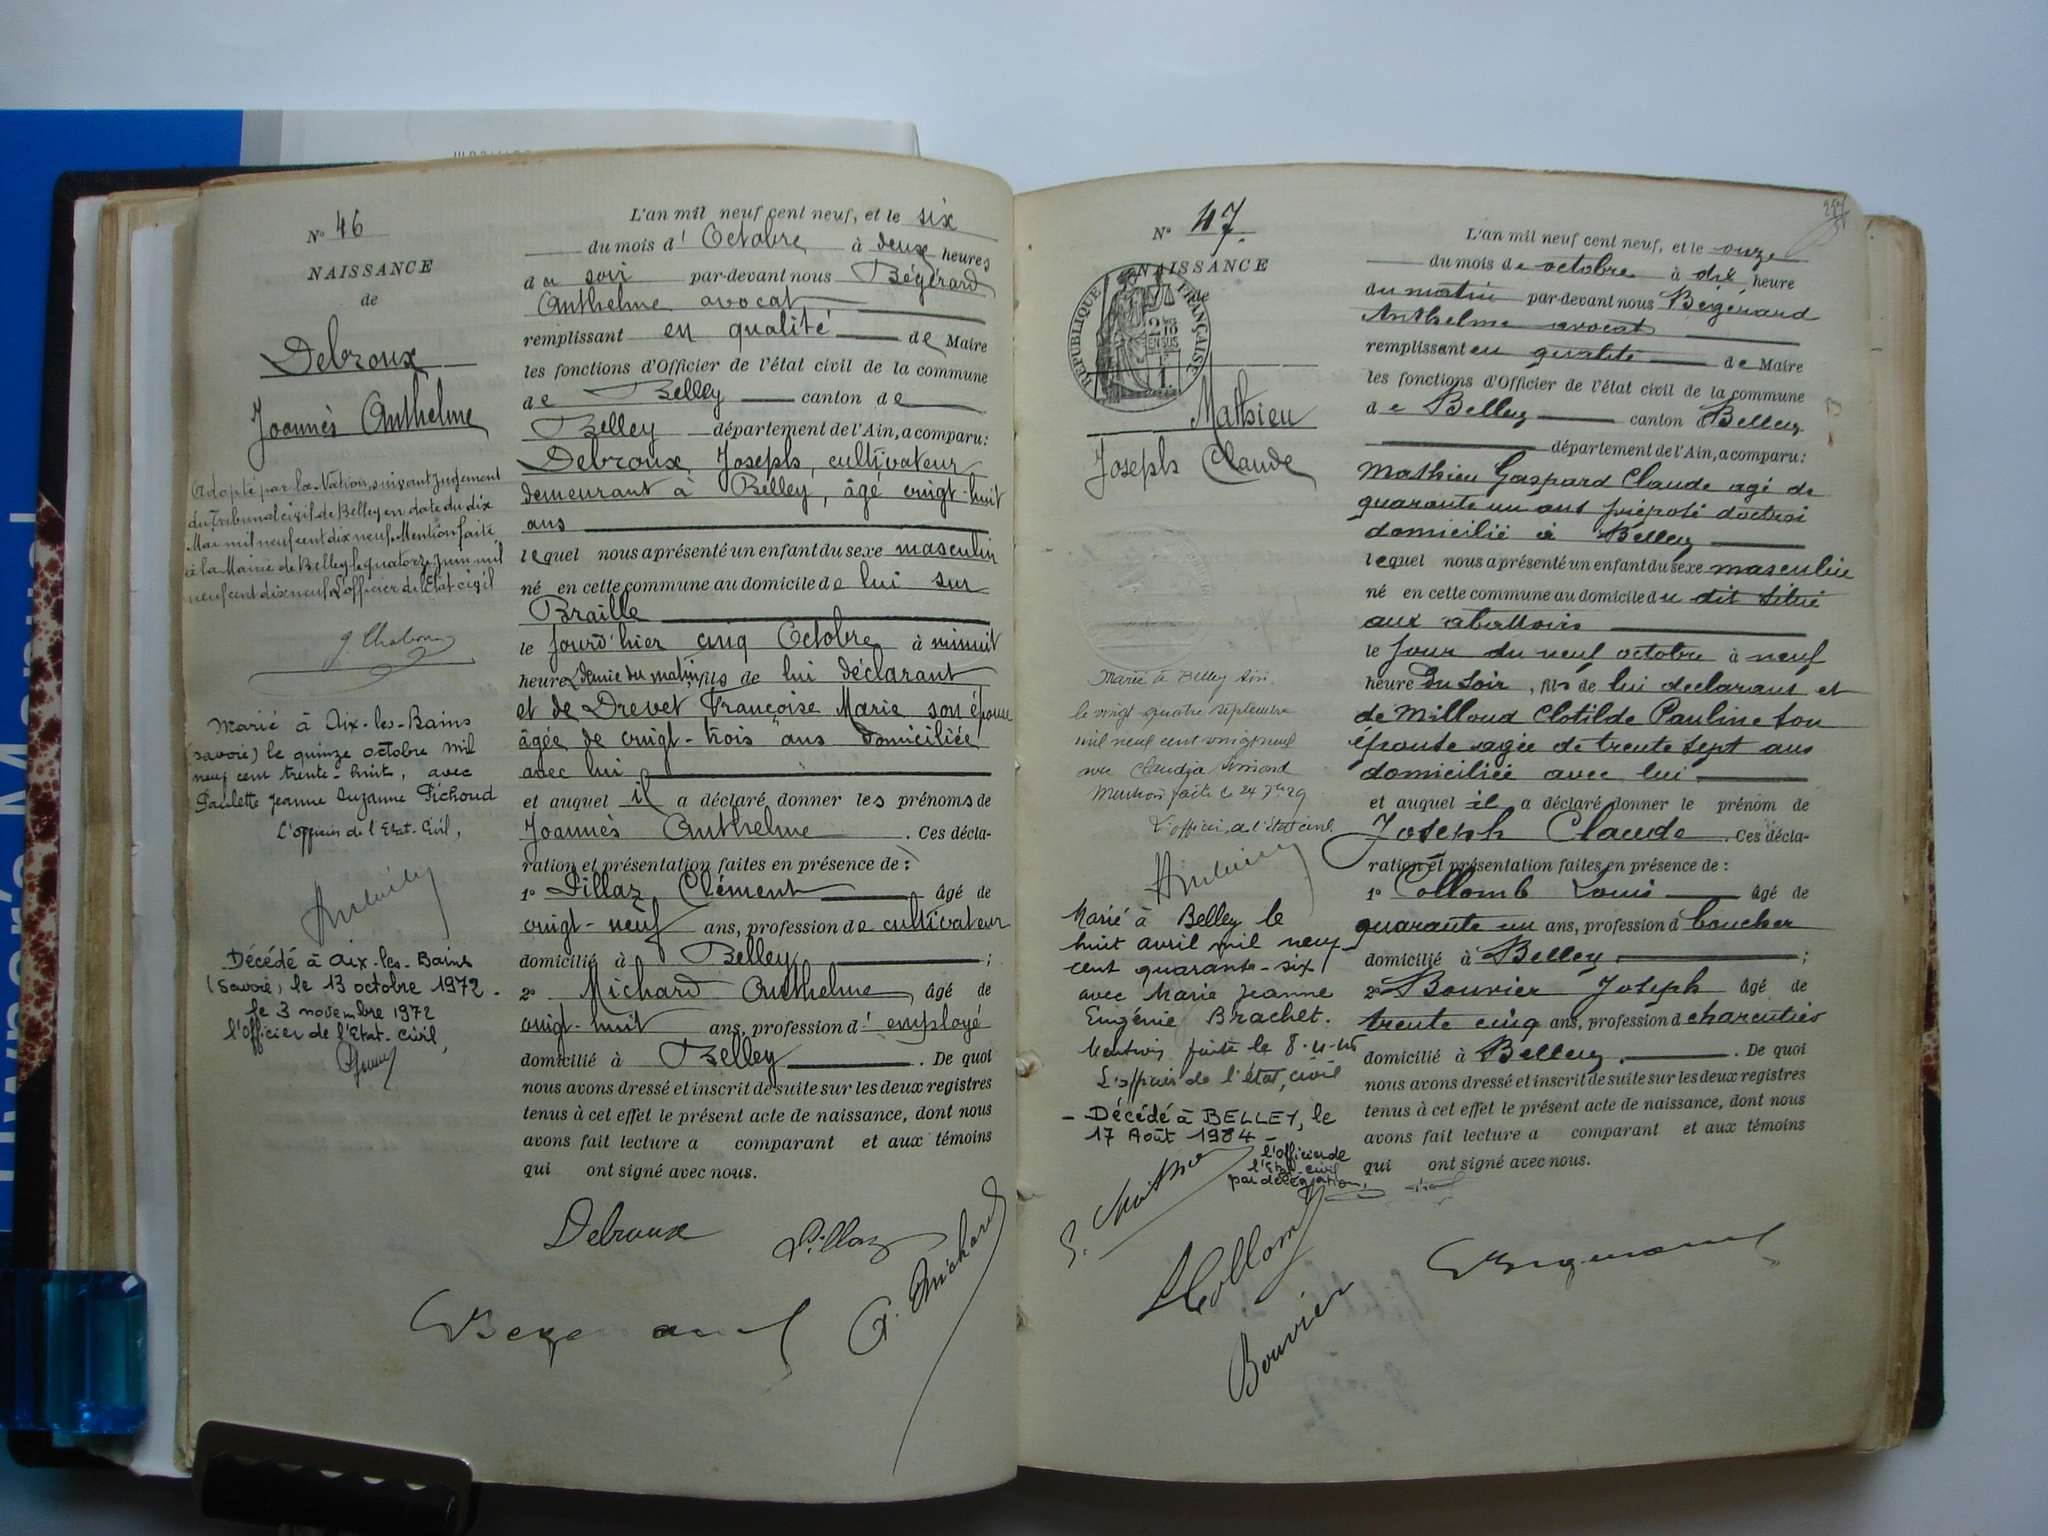 N° 46
NAISSANCE
de
Debroux
Joannès Anthelme
Adopté par la Nation, suivant jugement
du Tribunal civil de Belley en date du dix
Mai mil neuf cent dix neuf. Mention faite
à la Mairie de Belley le quatorze juin mil
neuf cent dix neuf. L'officier de l'Etat civil
Marié à Aix-les-Bains
(Savoie) le quinze octobre mil
neuf cent trente-huit, avec
Paulette Jeanne Suzanne Pichoud
L'officier de l'Etat-Civil,
Décédé à Aix-les-Bains
(Savoie) le 13 octobre 1972.
le 3 novembre 1972
l'Officier de l'Etat-Civil,
L'an mil neuf cent neuf, et le six
du mois d'Octobre à deux heures
du soir par-devant nous Bégérard
Anthelme avocat
remplissant en qualité de Maire
les fonctions d'Officier de l'état civil de la commune
de Belley canton de
Belley département de l'Ain, a comparu:
Debroux Joseph, cultivateur
demeurant à Belley, âgé vingt-huit
ans
lequel nous a présenté un enfant du sexe masculin
né en cette commune au domicile de lui sur
Braille
le jourd'hier cinq Octobre à minuit
heure demie du matin, fils de lui déclarant
et de Drevet Françoise Marie son épouse
âgée de vingt-trois ans domiciliée
avec lui
et auquel il a déclaré donner les prénoms de
Joannès Anthelme. Ces décla-
ration et présentation faites en présence de:
1° Pillaz Clément âgé de
vingt-neuf ans, profession de cultivateur
domicilié à Belley;
2° Michard Anthelme, âgé de
vingt-huit ans, profession d'employé
domicilié à Belley. De quoi
nous avons dressé et inscrit de suite sur les deux registres
tenus à cet effet le présent acte de naissance, dont nous
avons fait lecture a comparant et aux témoins
qui ont signé avec nous.
Debroux Pillaz
A. Michard
N° 47.
NAISSANCE
de
RÉPUBLIQUE FRANÇAISE
Mathieu
Joseph Claude
Marié à Belley Ain
le vingt quatre septembre
mil neuf cent vingt neuf
avec Claudia Simond
Mention faite le 24 7bre 29
L'officier de l'état civil
Marié à Belley le
huit avril mil neuf
cent quarante-six
avec Marie Jeanne
Eugénie Brachet.
Mention faite le 8-4-46
L'officier de l'état civil
- Décédé à BELLEY, le
17 Août 1984 -
l'Officier de
l'Etat-civil
par délégation,
L'an mil neuf cent neuf, et le onze
du mois de octobre à dix heure
du matin par-devant nous Bégérard
Anthelme avocat
remplissant en qualité de Maire
les fonctions d'Officier de l'état civil de la commune
de Belley canton Belley
département de l'Ain, a comparu:
Mathieu Gaspard Claude agé de
quarante un ans préposé d'octroi
domicilié à Belley
lequel nous a présenté un enfant du sexe masculin
né en cette commune au domicile du dit situé
aux abattoirs
le jour du neuf octobre à neuf
heure du soir, fils de lui déclarant et
de Milloud Clotilde Pauline son
épouse agée de trente sept ans
domiciliée avec lui
et auquel il a déclaré donner le prénom de
Joseph Claude. Ces décla-
ration et présentation faites en présence de:
1° Collomb Louis âgé de
quarante un ans, profession d boucher
domicilié à Belley;
2° Bouvier Joseph âgé de
trente cinq ans, profession d charcutier
domicilié à Belley. De quoi
nous avons dressé et inscrit de suite sur les deux registres
tenus à cet effet le présent acte de naissance, dont nous
avons fait lecture a comparant et aux témoins
qui ont signé avec nous.
Collomb
Bouvier